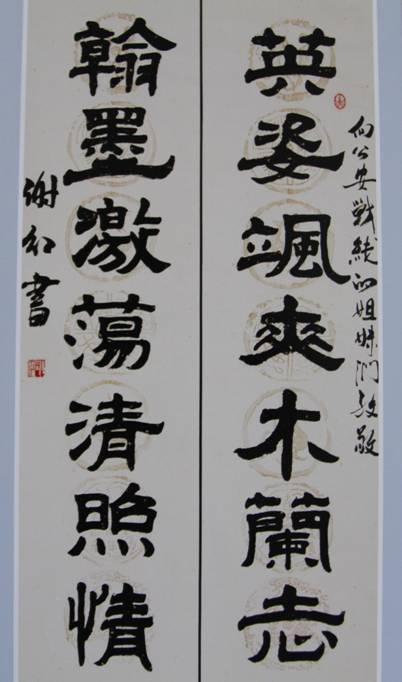 向公安戰綫的姐妹们致敬
英姿颯爽木蘭志
翰墨激蕩清照情
谢红書